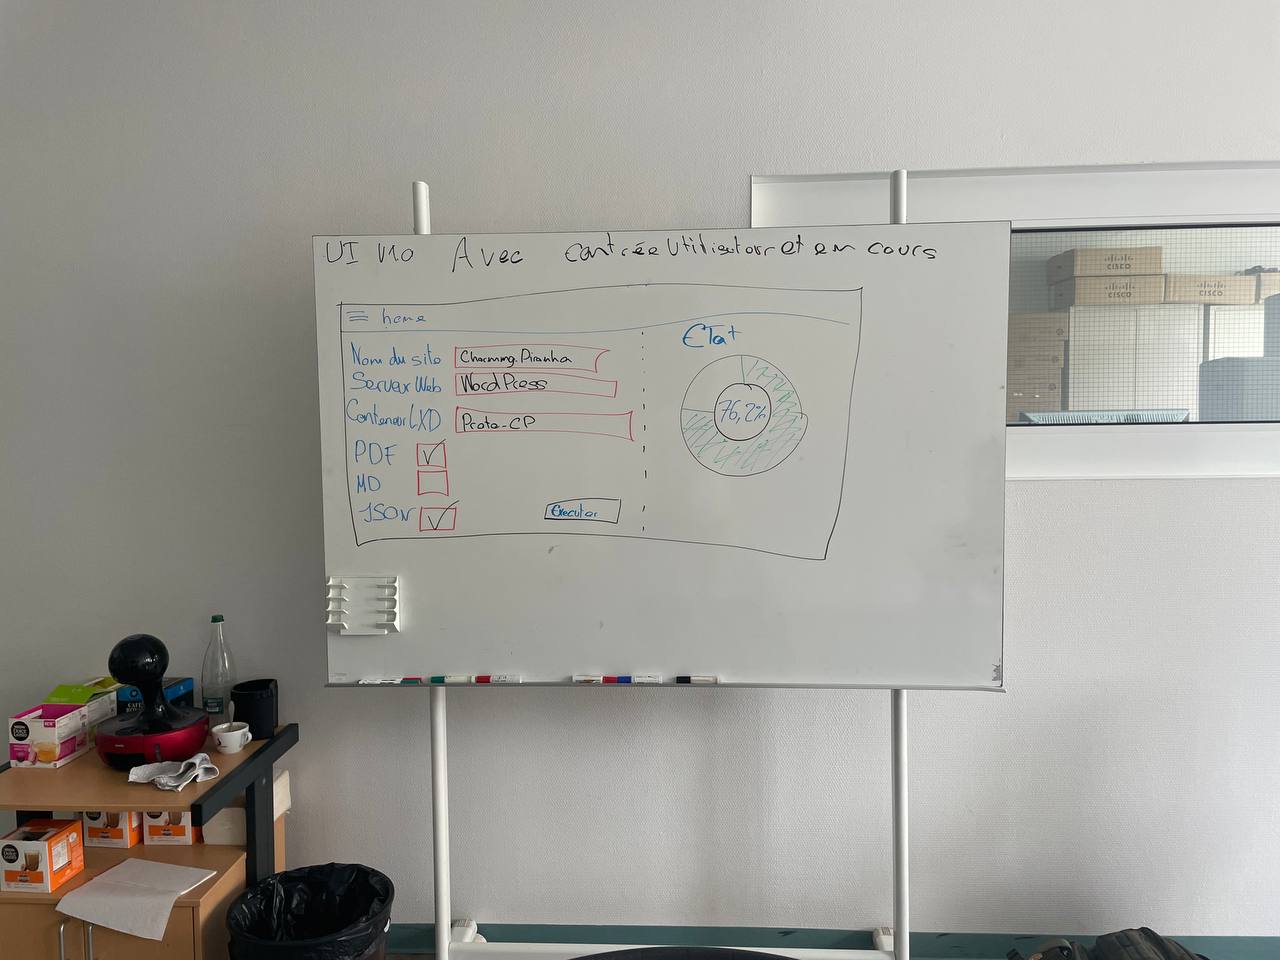 UI V10 Avec entrée Utilisateur et en cours
≡ home
Nom du site Charming.Piranha
Serveur Web WordPress
Conteneur LXD Proto-CP
PDF ✓
MD
JSON ✓
Executer
Etat
76,2%
CISCO
CISCO
CISCO